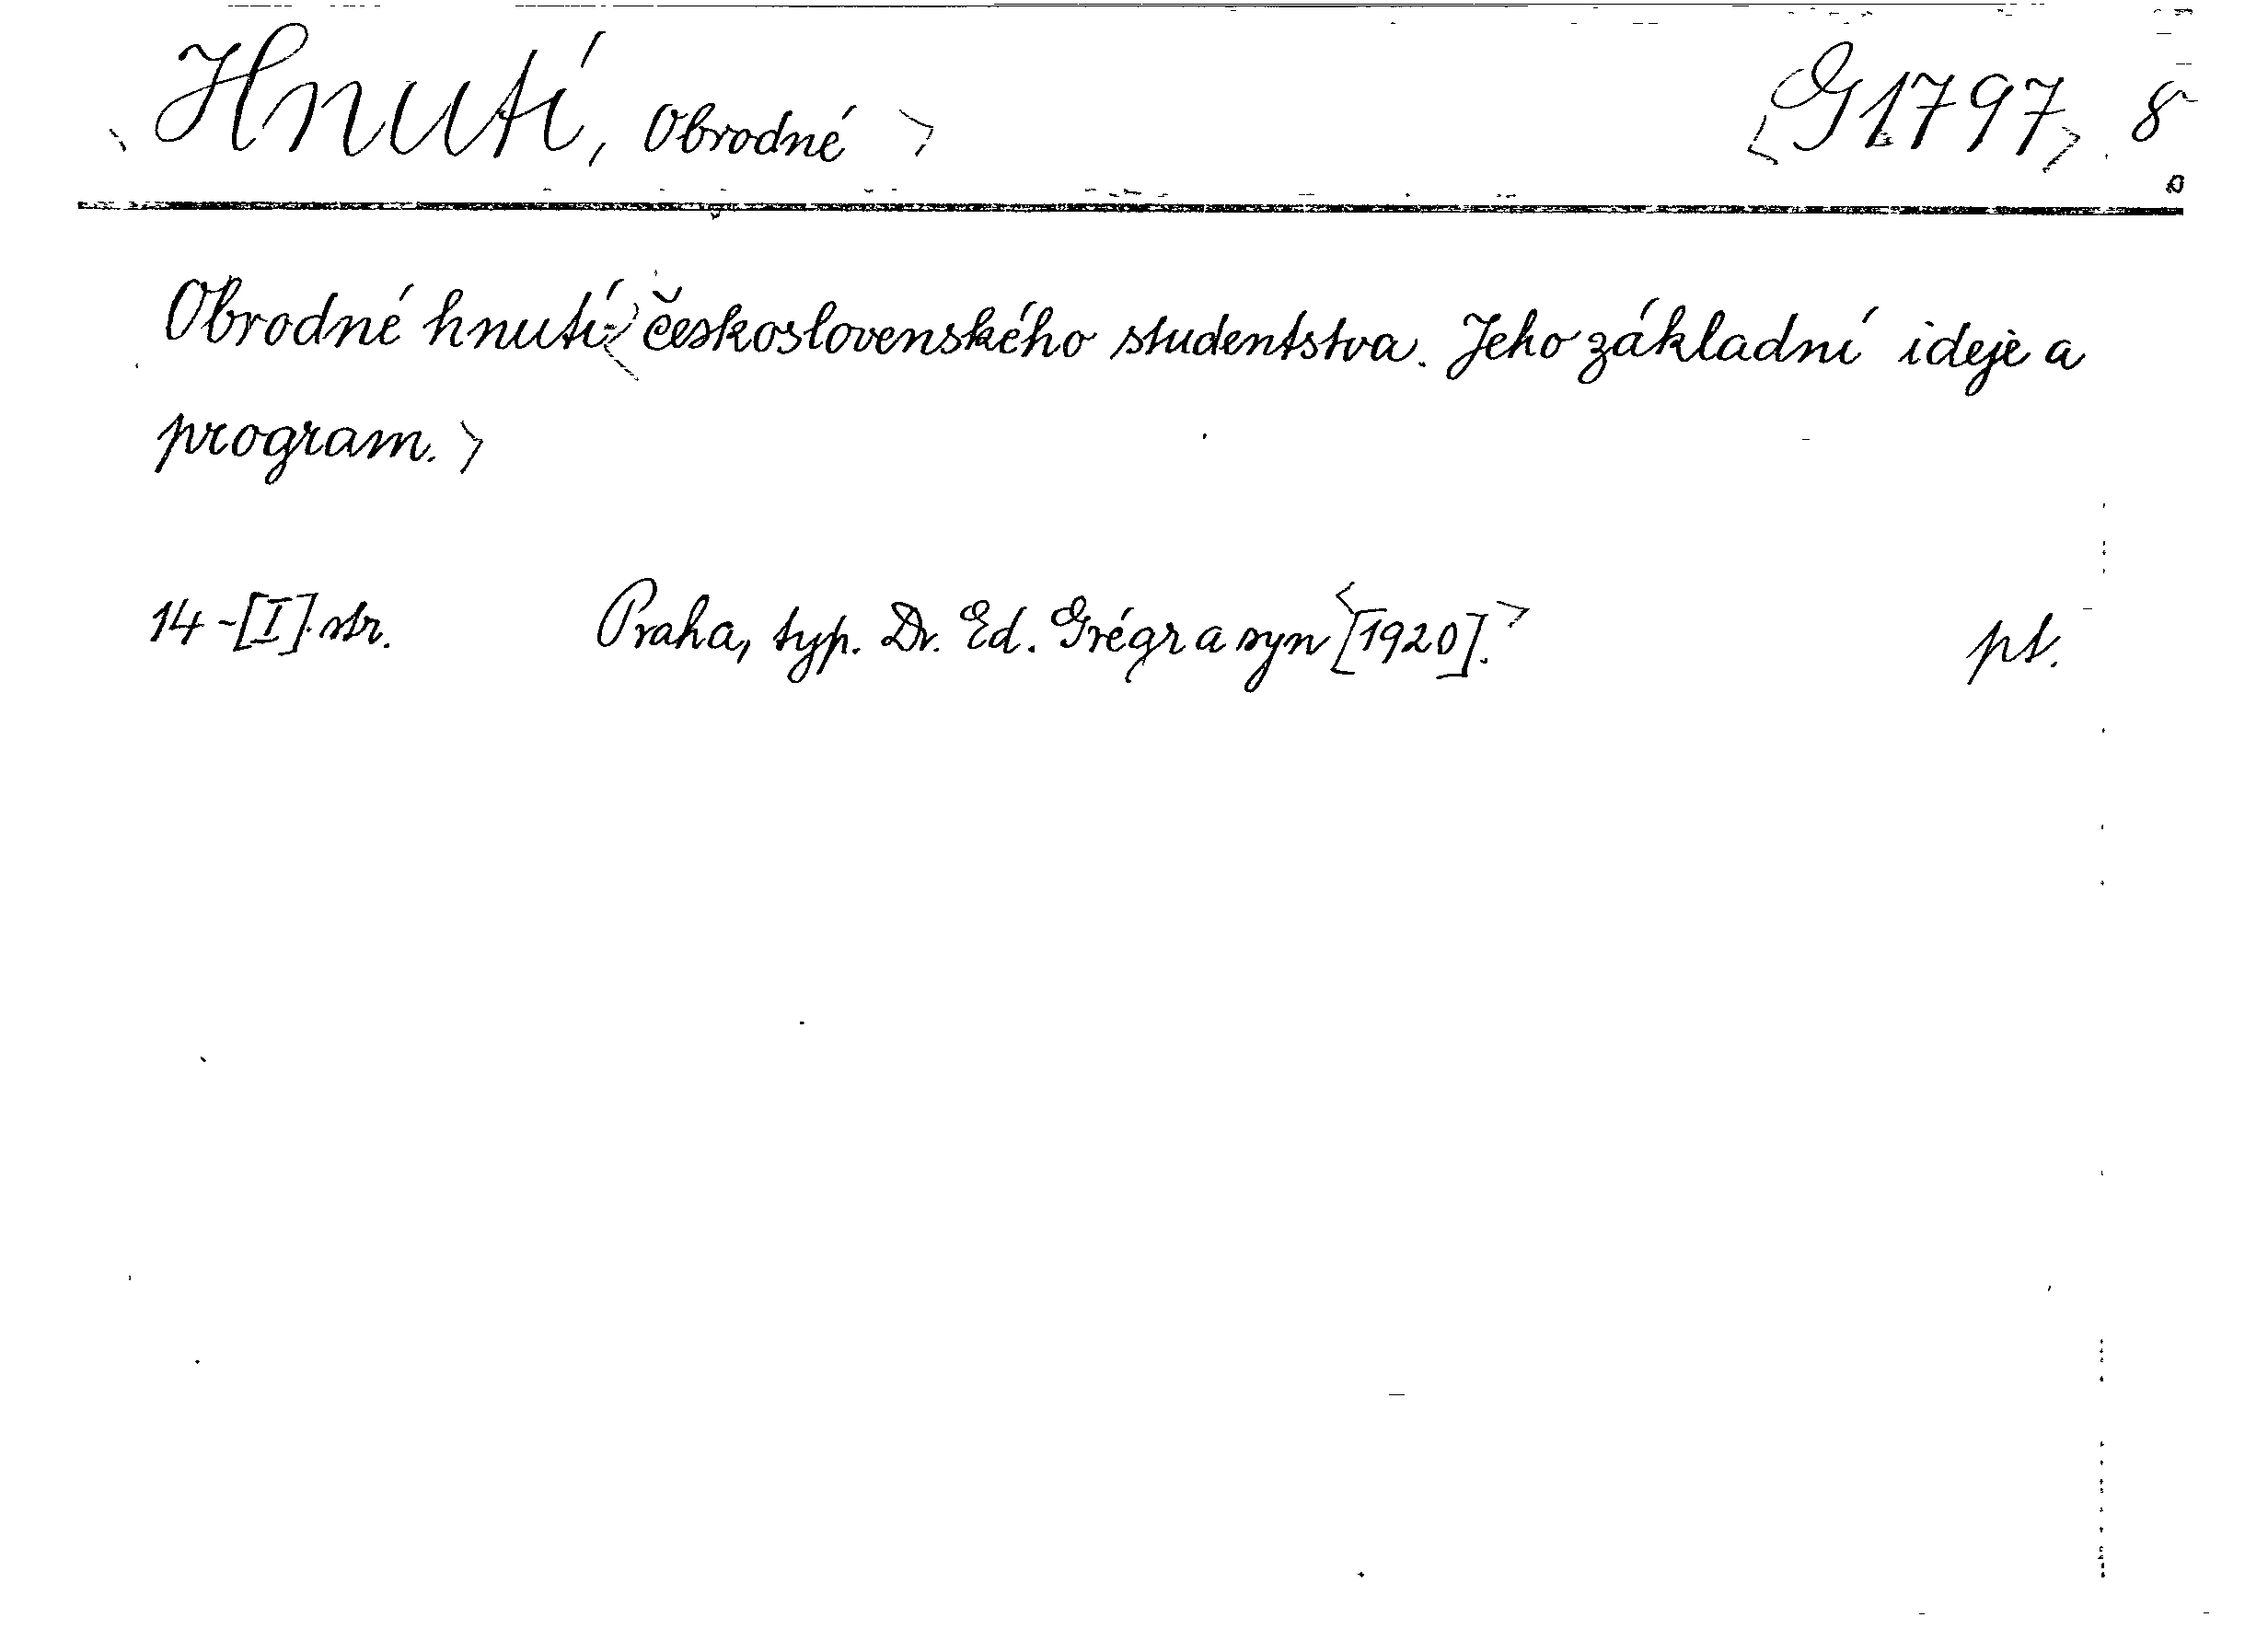 Hnutí, Obrodné > <G1797> 8
Obrodné hnutí <československého studentstva. Jeho základní ideje a
program.>
14-[I] str. Praha, typ. Dr. Ed. Grégr a syn <[1920].> pt.